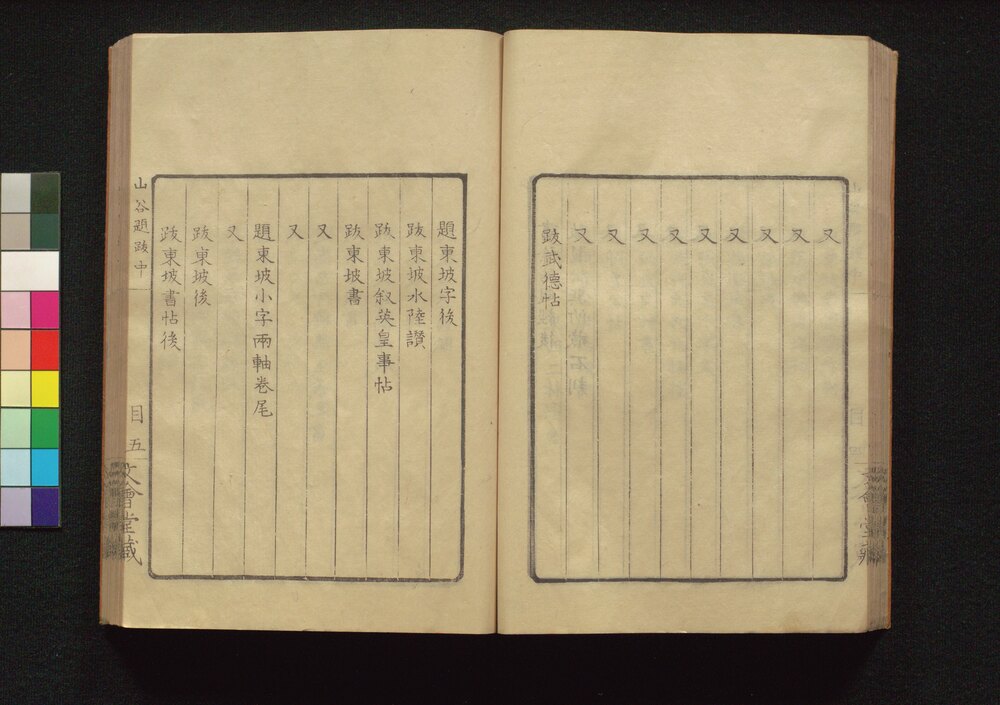 又
又
又
又
又
又
又
又
又
跋武德帖
題東坡字後
跋東坡水陸讚
跋東坡叙英皇事帖
跋東坡書
又
又
題東坡小字兩軸卷尾
又
跋東坡後
跋東坡書帖後
山谷題跋中
目 五
文會堂藏